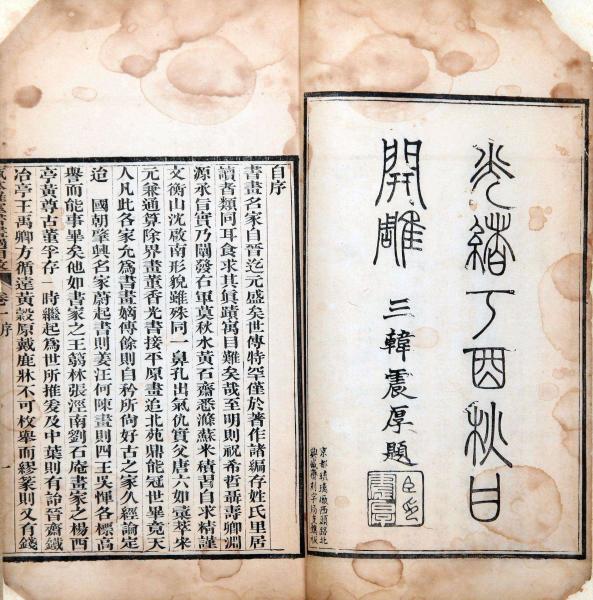 光緒丁酉秋日
開雕
三韓震厚題
京都琉璃廠西頭路北
自序
書畫名家自晉迄元盛矣世傳特罕僅於著作諸編存姓氏里居
讀者類同耳食求其真蹟寓目難矣哉至明則祝希哲聶壽卿淵
源永旨實乃闡發右軍莫秋水黃石齋悉滌蘇米積習自求精謹
文衡山沈啟南形貌雖殊同一鼻孔出氣仇實父唐六如彙萃宋
元兼通算除界畫董香光書接平原畫追北苑鼎能冠世畢竟天
人凡此各家允為書畫嫡傳餘則自矜所尚好古之家久經論定
迨 國朝肇興名家蔚起書則姜汪何陳畫則四王吳惲各標高
譽而能事畢矣他如書家之王蒻林張涇南劉石庵畫家之楊西
亭黃尊古董孚存一時繼起為世所推爰及中葉則有詒晉齋鐵
冶亭王禹卿方循遠黃穀原戴鹿牀不可枚舉而繆篆則又有錢
卷一序
一